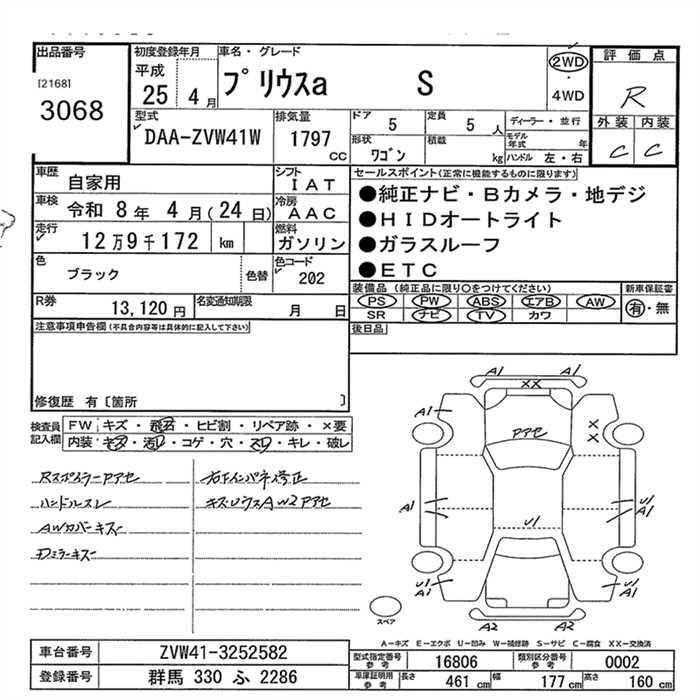 出品番号
[2168]
3068
初度登録年月
平成
25 4 月
車名・グレード
プリウスa S
2WD
・
4WD
評価点
R
外装 内装
C C
型式
DAA-ZVW41W
排気量
1797 CC
ドア 5
定員 5 人
ディーラー・並行
形状 ワゴン
積載 kg
モデル年式 年
ハンドル 左・右
車歴 自家用
シフト IAT
車検 令和 8 年 4 月 (24 日)
冷房 AAC
走行 12 万 9 千 172 km
燃料 ガソリン
色 ブラック 色替
色コード 202
R券 13,120 円
名変通知期限 月 日
セールスポイント(正常に機能するものに限ります)
●純正ナビ・Bカメラ・地デジ
●HIDオートライト
●ガラスルーフ
●ETC
装備品 (純正品に限り○をつけてください)
新車保証書
PS PW ABS エアB AW
有・無
SR ナビ TV カワ
後日品
注意事項申告欄(不具合内容等は具体的に記入して下さい)
修復歴 有〔箇所 〕
検査員記入欄
FW キズ・飛石・ヒビ割・リペア跡・×要
内装 キズ・汚レ・コゲ・穴・スレ・キレ・破レ
Rスポイラーアセ
ハンドルスレ
AWカバーキズ
Dミラーキズ
A1 A1
XX
A1
アアセ
X
X
A1
U1
U1
A1
U1
A1
U1
A1
A2 A2
スペア
A-キズ E-エクボ U-凹み W-補修跡 S-サビ C-腐食 XX-交換済
車台番号 ZVW41-3252582
登録番号 群馬 330 ふ 2286
型式指定番号参考 16806
類別区分番号参考 0002
車庫証明用参考 長さ 461 cm 幅 177 cm 高さ 160 cm